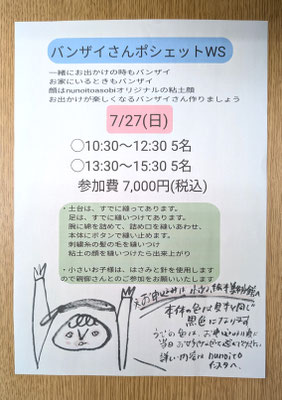 バンザイさんポシェットWS
一緒にお出かけの時もバンザイ
お家にいるときもバンザイ
顔はnunoitoasobiオリジナルの粘土顔
お出かけが楽しくなるバンザイさん作りましょう
7/27(日)
〇10:30〜12:30 5名
〇13:30〜15:30 5名
参加費 7,000円(税込)
・土台は、すでに縫ってあります。
足は、すでに縫いつけてあります。
腕に綿を詰めて、詰め口を縫いあわせ、
本体にボタンで縫い止めます。
刺繍糸の髪の毛を縫いつけ
粘土の顔を縫いつけたら出来上がり
・小さいお子様は、はさみと針を使用します
ので親御さんとのご参加をお願いいたします
お申込みは
美術館へ
本体の色は見本と同じ
黒色になります
詳しい内容は nunoito